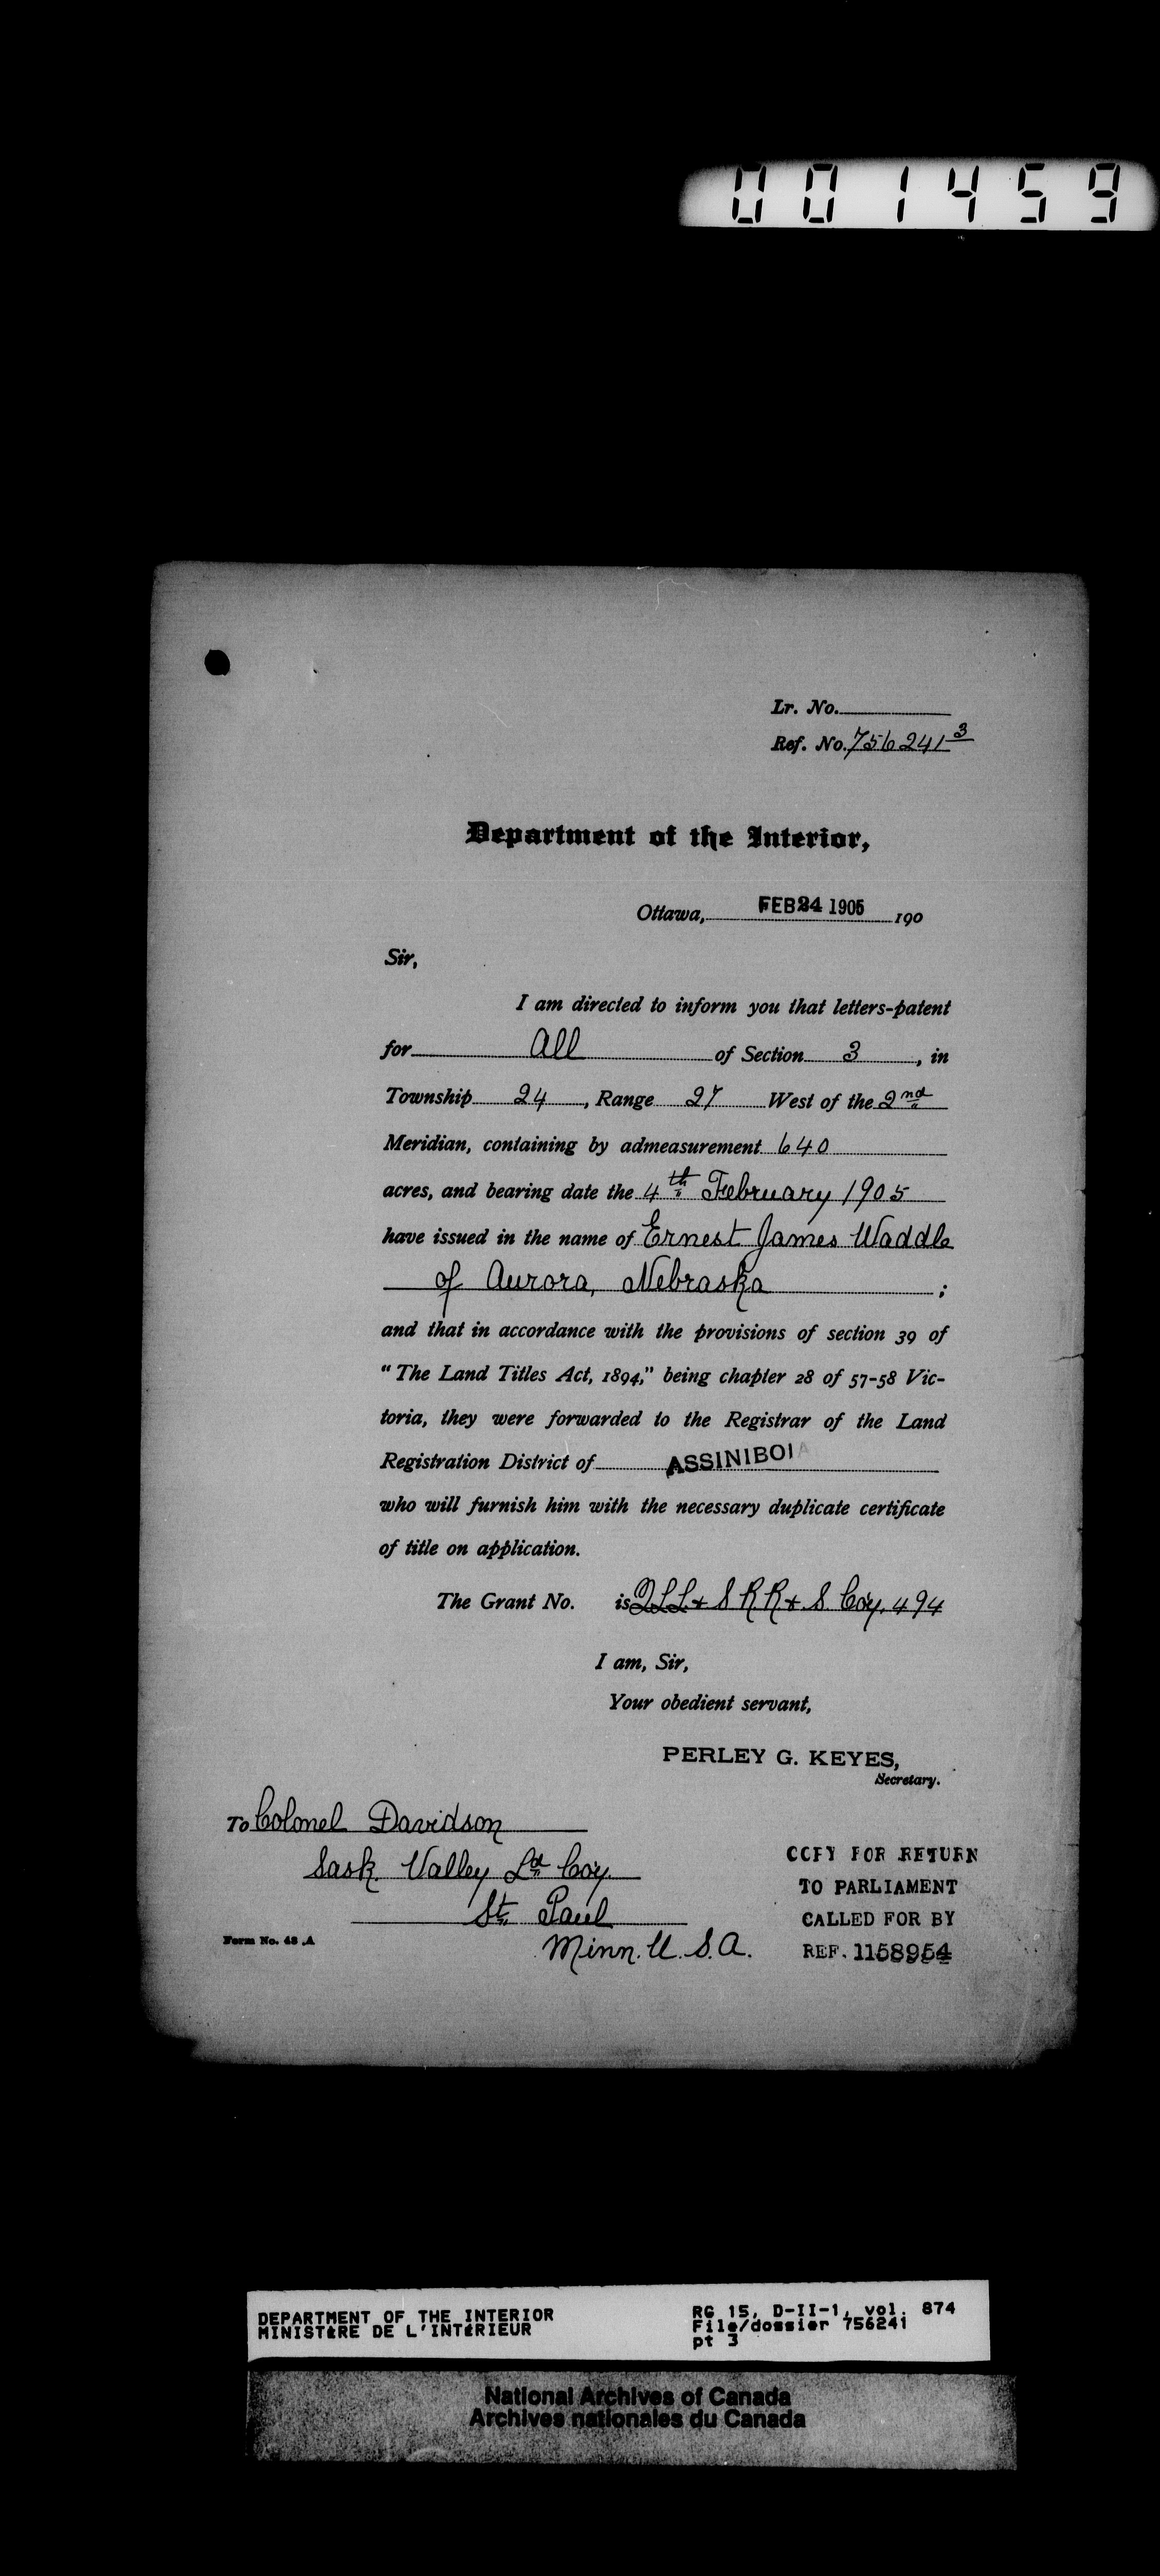 001459
Lr. No.
Ref. No. 756241 3
Department of the Interior,
Ottawa, FEB 24 1905 190
Sir,
I am directed to inform you that letters-patent
for All of Section 3, in
Township 24, Range 27 West of the 2nd
Meridian, containing by admeasurement 640
acres, and bearing date the 4th February 1905
have issued in the name of Ernest James Waddle
of Aurora, Nebraska ;
and that in accordance with the provisions of section 39 of
“The Land Titles Act, 1894,” being chapter 28 of 57-58 Vic-
toria, they were forwarded to the Registrar of the Land
Registration District of ASSINIBOIA
who will furnish him with the necessary duplicate certificate
of title on application.
The Grant No. is Q.L.L. & S R.R. & S. Coy. 494
I am, Sir,
Your obedient servant,
PERLEY G. KEYES,
Secretary.
To Colonel Davidson
Sask. Valley Ld Coy.
St. Paul
Minn. U. S. A.
Form No. 48 A
COPY FOR RETURN
TO PARLIAMENT
CALLED FOR BY
REF. 1158954
DEPARTMENT OF THE INTERIOR
MINISTÈRE DE L'INTÉRIEUR
RG 15, D-II-1, vol. 874
File/dossier 756241
pt 3
National Archives of Canada
Archives nationales du Canada